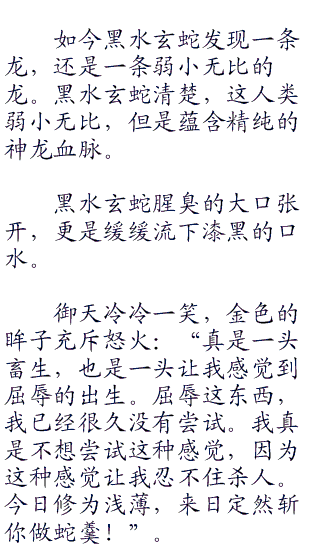 如今黑水玄蛇发现一条
龙，还是一条弱小无比的
龙。黑水玄蛇清楚，这人类
弱小无比，但是蕴含精纯的
神龙血脉。
黑水玄蛇腥臭的大口张
开，更是缓缓流下漆黑的口
水。
御天冷冷一笑，金色的
眸子充斥怒火：“真是一头
畜生，也是一头让我感觉到
屈辱的出生。屈辱这东西，
我已经很久没有尝试。我真
是不想尝试这种感觉，因为
这种感觉让我忍不住杀人。
今日修为浅薄，来日定然斩
你做蛇羹！”。